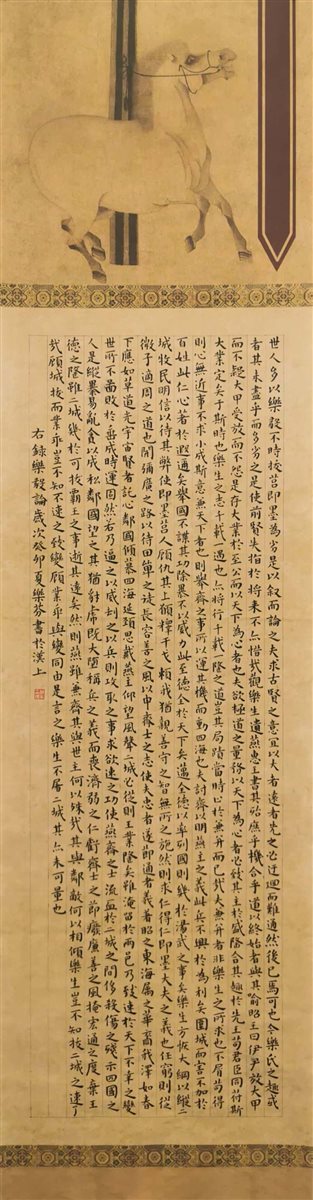 世人多以樂毅不時拔莒即墨為劣是以叙而論之夫求古賢之意宜以大者遠者先之必迂迴而難通然後已焉可也今樂氏之趣或
者其未盡乎而多劣之是使前賢失指於將來不亦惜哉觀樂生遺燕惠王書其殆庶乎機合乎道以終始者與其喻昭王曰伊尹放大甲
而不疑大甲受放而不怨是存大業於至公而以天下為心者也夫欲極道之量務以天下為心者必致其主於盛隆合其趣於先王苟君臣同符斯
大業定矣于斯時也樂生之志千載一遇也亦將行千載一隆之道豈其局蹟當時止於兼并而已哉夫兼并者非樂生之所求也不屑苟得
則心無近事不求小成斯意兼天下者也則舉齊之事所以運其機而動四海也夫討齊以明燕主之義此兵不興於為利矣圍城而害不加於
百姓此仁心著於遐邇矣舉國不謀其功除暴不以威力此至德全於天下矣邁全德以率列國則幾於湯武之事矣樂生方恢大綱以縱二
城牧民明信以待其弊使即墨莒人顧仇其上願釋干戈賴我猶親善守之智無所之施然則求仁得仁即墨大夫之義也任窮則從
微子適周之道也開彌廣之路以待田單之徒長容善之風以申齊士之志使夫忠者遂節通者義著昭之東海屬之華裔我澤如春
下應如草道光宇宙賢者託心鄰國傾慕四海延頸思戴燕主仰望風聲二城必從則王業隆矣雖淹留於兩邑乃致速於天下不幸之變
世所不圖敗於垂成時運固然若乃逼之以威劫之以兵則攻取之事求欲速之功使燕齊之士流血於二城之間侈殺傷之殘示四國之
人是縱暴易亂貪以成私鄰國望之其猶豺虎既大墮稱兵之義而喪濟弱之仁虧齊士之節廢廉善之風掩宏通之度棄王
德之隆雖二城幾於可拔霸王之事逝其遠矣然則燕雖兼齊其與世主何以殊哉其與鄰敵何以相傾樂生豈不知拔二城之速了
哉顧城拔而業乖豈不知不速之致變顧業乖與變同由是言之樂生不屠二城其亦未可量也
右錄樂毅論歲次癸卯夏樂芬書於漢上